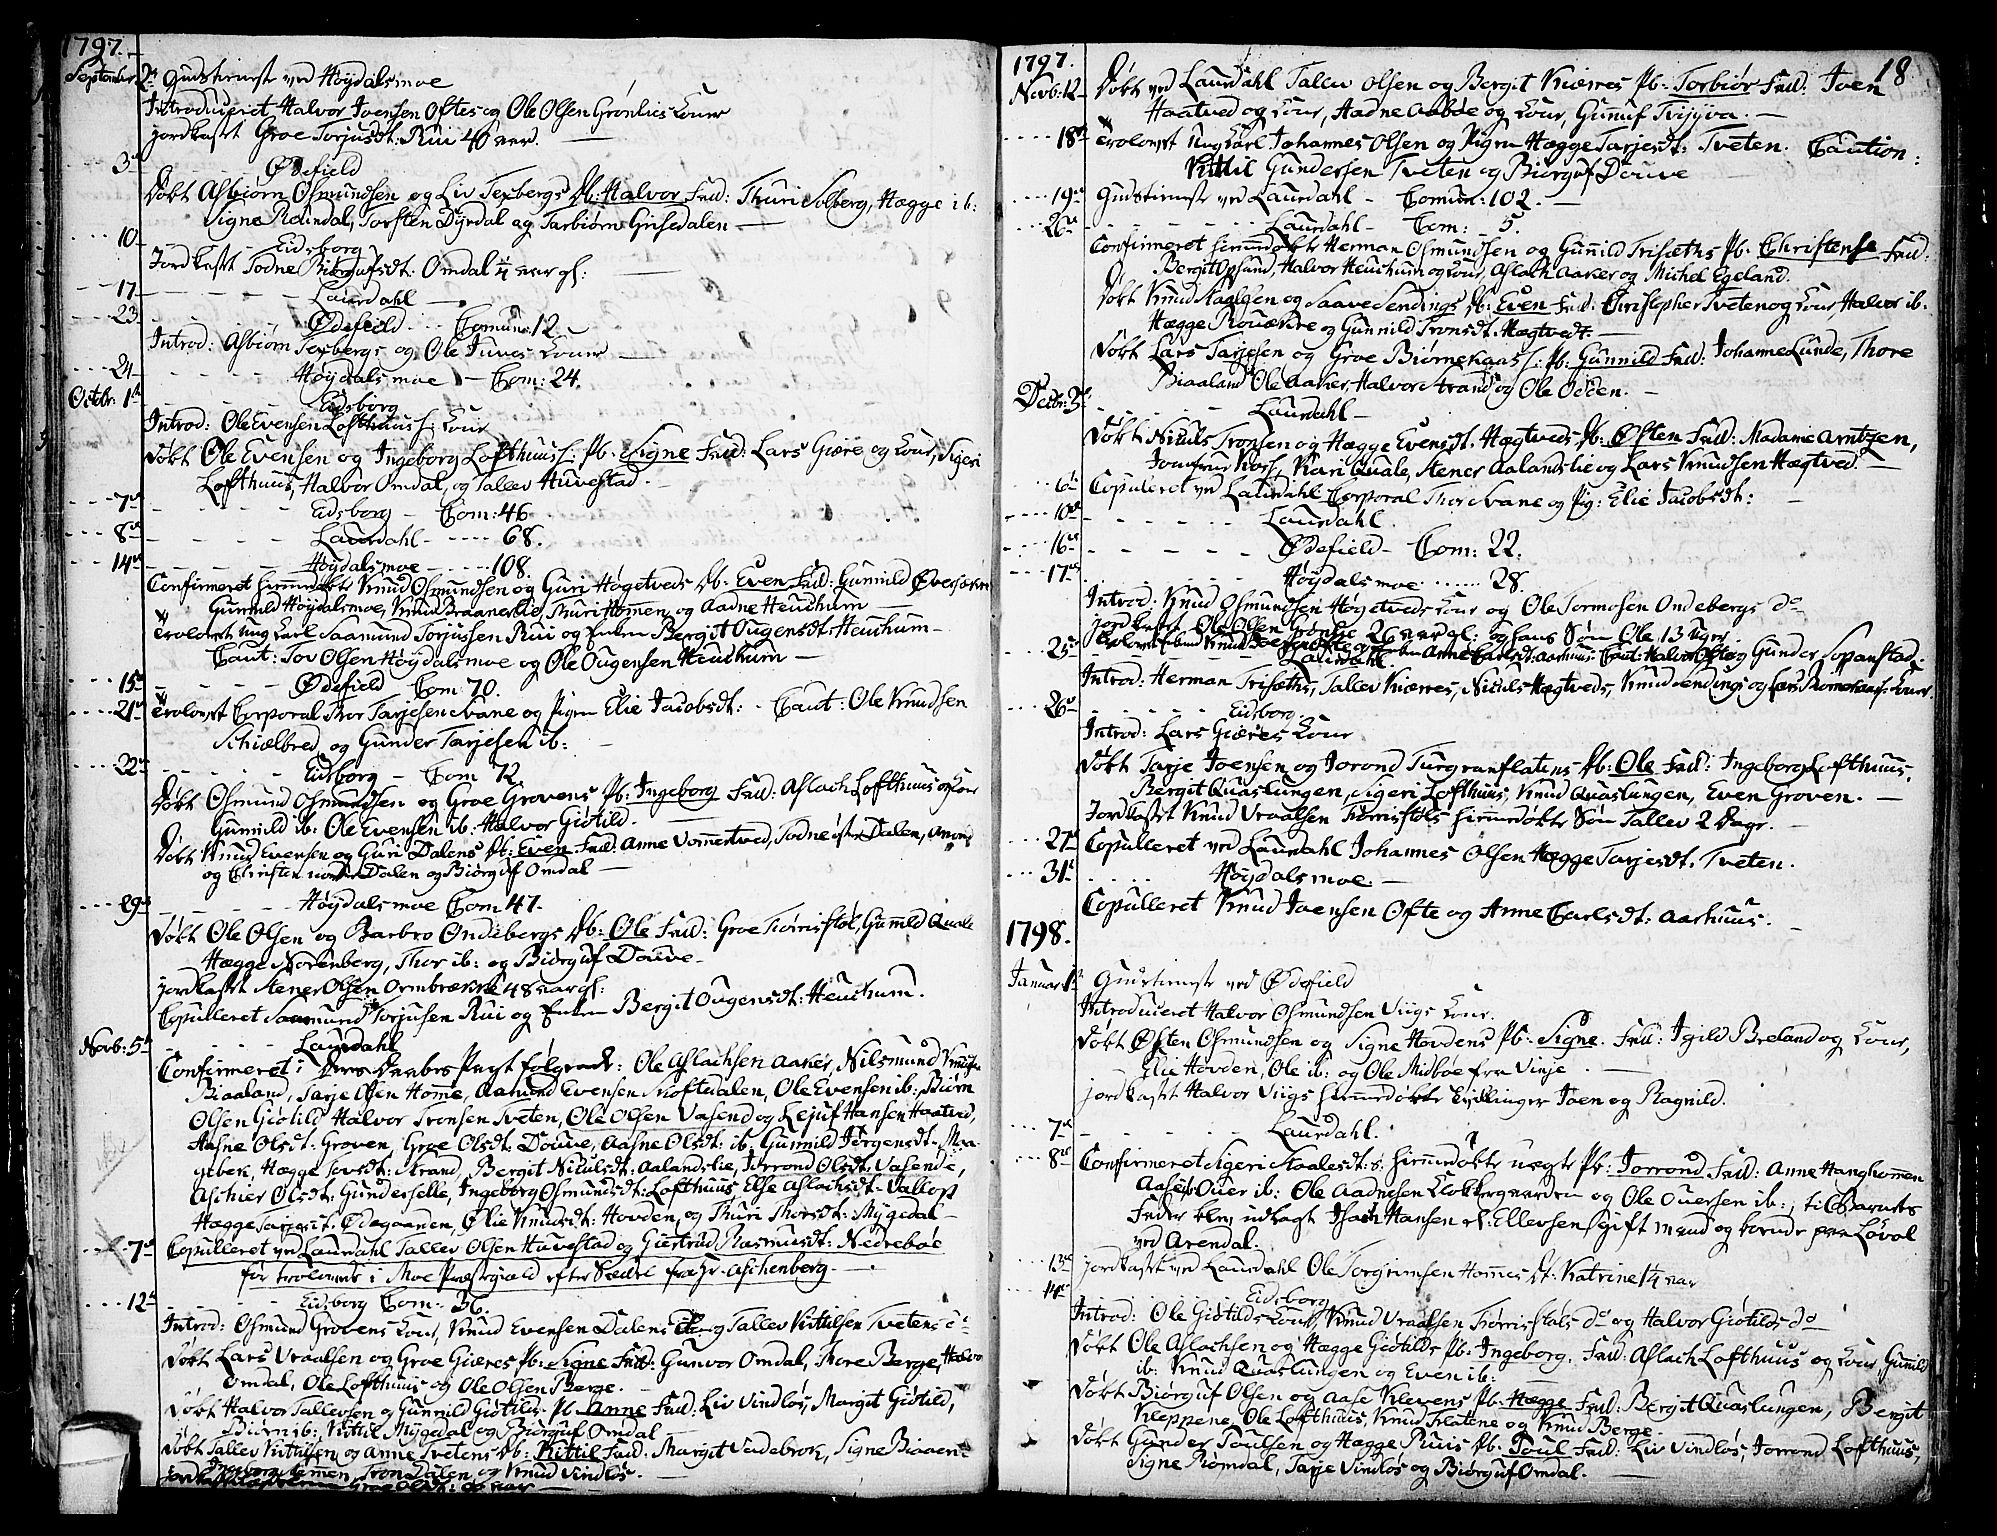 1797.
September 2den Gudstieneste ved Høydalsmoe
Introduceret Halvor Joensen Oftes og Ole Olsen Grønlies Koner
Jordkastet Groe Torjusdt: Rui 40 aar.
3die Ødefield
Døbt Asbiørn Osmundsen og Liv Texbergs Pb: Halvor Fad: Thuri Solberg, Hægge ib:
Signe Reindal, Torsten Dyrdal og Tarbiørn Grisedalen
10 Eidsborg
Jordkastet Todne Biørgufsdt: Omdal 1/4 aar gl:
17 Laurdahl
23 Ødefield Comun: 12
Introd: Asbiørn Texbergs og Ole Juves Koner
24 Høydalsmoe Com: 24.
Octbr: 1ste Eidsborg
Introd: Ole Evensen Lofthuus h: Kone
Døbt Ole Evensen og Ingeborg Lofthuus h: Pb: Signe Fad: Lars Giære og Kone, Sigeri
Lofthuus, Halvor Omdal, og Tallev Huvestad.
7de Eidsborg Com: 46
8de Laurdahl 68.
14de Høydalsmoe 108.
Confirmeret hiemmedøbte Knud Osmundsen og Guri Høgetveds Db: Even Fad: Gunnild
Gunnild Høydalsmoe, Knud Braanerlie, Thuri Homen og Aadne Heuchum
Trolovet Ung Karl Saamund Torjussen Rui og Enken Bergit Ougensdt: Heuchum
Caut: Tov Olsen Høydalsmoe og Ole Ougensen Heuchum
15de Ødefield Com 70.
21de Trolovet Corporal Thor Tarjesen Svane og Pigen Elie Jacobsdt: Caut: Ole Knudsen
Schiælbred og Gunder Tarjesen ib:
22de Eidsborg Com 72.
Døbt Osmund Osmundsen og Groe Grovens Pb: Ingeborg Fad: Aslach Lofthuus og Kone
Gunnild ib: Ole Evensen ib: Halvor Giøtild.
Døbt Knud Evensen og Guri Dalens Db: Even Fad Anne Vonnestved, Todne øfre Dalen,
og Christen nordre Dalen og Biørguf Omdal
29de Høydalsmoe Com 47.
Døbt Ole Olsen og Barbro Ondebergs Db: Ole Fad: Groe Tiørristøl, Gunnild Quale
Hægge Norenberg, Thor ib: og Biørguf Douve
Jordkastet Stener Olsen Ormbrække 48 aar gl:
Copulleret Saamund Torjusen Rui og Enken Bergit Ougensdt: Heuchum.
Novb: 5te Laurdahl
Confirmeret følgende: Ole Aslachsen Aaker, Nilsmund Knuds:
Biaaland, Tarje Olsen Homme, Aamund Evensen Skoftedalen, Ole Evensen ib: Biørn
Olsen Giøtild, Halvor Tronsen Tveten, Ole Olsen Vasend og Lejuf Hansen Haatved,
Aasne Olsdt: Groven, Groe Olsdt: Douve, Aasne Olsdt: ib: Gunnild Jørgensdt:
Hægge Tovsdt: Strand, Bergit Niculsdt: Aalandslie, Jorrond Olsdt: Vasende,
Aschier Olsdt: Gunderselle, Ingeborg Osmundsdt: Lofthuus, Else Aslachsdt: Vallosp
Hægge Tarjesdt: Ødegaarden, Ølie Knudsdt: Hovden, og Thuri Thorsdt: Mygedal
7de Copulleret ved Laurdahl Tallev Olsen Huvestad og Giertrud Rasmusdt: Nedrebøe
før trolovede i Moe Præstegield efter Seddel fra Hr. Aschenberg
12te Eidsborg Com: 36.
Introd: Osmund Grovens Kone, Knud Evensen Dalens do og Tallev Kittilsen Tvetens do
Døbt Lars Vraalsen og Groe Giæres Pb: Signe Fad: Gunvor Omdal, Thore Berge, Halvor
Omdal, Ole Lofthuus og Ole Olsen Berge.
Døbt Halvor Tallevsen og Gunnild Giøtilds Pb. Anne Fad: Liv Vindlos, Margit Giøtild,
Biørn ib: Kittil Mygedal og Biørguf Omdal
Døbt Tallev Kittilsen og Anne Tvetens Db: Kittil Fad: Margit Vadebrok, Signe
Ingeborg Homen, Tron Dalen og Knud Vindlos.
18
1797.
Novb: 12 Døbt ved Laurdahl Tallev Olsen og Bergit Kiæres Pb: Torbiør Fad: Joen
Haatved og Kone, Aadne Aabøe og Kone, Gunuf
18de Trolovet Ung Karl Johannes Olsen og Pigen Hægge Tarjesdt: Tveten. Caution:
Kittil Gundersen Tveten og Biørguf Douve
19de Gudstieneste ved Laurdahl Comun: 102.
26de Laurdahl Com: 5.
Confirmeret hiemmedøbte Herman Osmundsen og Gunnild Trisæths Pb: Christense Fad:
Bergit Opsund, Halvor Heuchum og Kone, Aslach Aaker og Michel Egeland.
Døbt Knud Staalsen og Saave Sendings Pb: Even Fad: Christopher Tveten og Kone, Halvor ib.
Hægge og Gunnild Tronsdt: Hægtvedt.
Døbt Lars Tarjesen og Groe Biørnekaas h: Pb: Gunnild Fad: Johanne Lunde, Thore
Biaaland, Ole Aaker, Halvor Strand og Ole Odden.
Decbr: 3die Laurdahl
Døbt Niculs Tronsen og Hægge Evensdt. Hægtveds Db: Østen Fad: Madame Arntzen,
Jomfrue Kors, Kari Quale, Stener Aalandslie og Lars Knudsen Hægtved.
6te Copulleret ved Laurdahl Corporal Thor Svane og Pig: Elie Jacobsdt:
10de Laurdahl.
16de Ødefield Com: 22.
17de Høydalsmoe 28.
Introd: Knud Osmundsen Høgetveds Kone og Ole Tormosen Ondebergs do
Jordkastet Ole Olsen Grønlie 26 aar gl: og hans Søn Ole 13 Uger
Trolovet Knud Joensen Ofte og Anne Carlsdt: Aarhuus Caut: Halvor Ofte og Gunder Sopanstad
25de Laurdahl
Introd: Herman Trisæths, Tallev Kiæres, Niculs Hægtveds, Knud Sendings og Lars Biørnekaas h: Koner.
26de Eidsborg.
Introd: Lars Giæres Kone
Døbt Tarje Joensen og Jorond Turgranflatens Pb: Ole Fad: Ingeborg Lofthuus,
Bergit Quaslungen, Sigeri Lofthuus, Knud Quaslungen, Even Groven.
Jordkastet Knud Vraalsen Tiørristøls hiemmedøbte Søn Tallev 2 Dage.
27de Copulleret ved Laurdahl Johannes Olsen Hægge Tarjesdt. Tveten.
31te Høydalsmoe.
Copulleret Knud Joensen Ofte og Anne Carlsdt: Aarhuus.
1798.
Januar 1ste Gudstieneste ved Ødefield
Introduceret Halvor Osmundsen Viigs Kone.
Døbt Østen Osmundsen og Signe Hovdens Pb: Signe. Fad: Igild Breland og Kone,
Elie Hovden, Ole ib: og Ole Midbøe fra Vinje.
Jordkastet Halvor Viigs hiemmedøbte Tvillinger Joen og Ragnild.
7de Laurdahl.
8de Confirmeret Sigeri Staalesdt: s: hiemmedøbte uægte Pb: Jorrond Fad: Anne Hanghomen
Aase Ouer ib: Ole Aadnesen Klokkergaarden og Ole Ouersen ib:, til Barnets
Fader blev udlagt Isach Hansen el: Ellevsen gift mand og boende paa Løvol
ved Arendal.
13de Jordkastet ved Laurdahl Ole Torgrimsen Hommes dt: Katrine 1/4 aar
14de Eidsborg
Introd: Ole Giøtilds Kone, Knud Vraalsen Tiørristøls do og Halvor Giøtilds do
Døbt Ole Aslachsen og Hægge Giøtilds Pb: Ingeborg. Fad: Aslach Lofthuus og Kone, Gunild
ib: Knud Quaslungen og Even ib:
Døbt Biørguf Olsen og Aase Klevens Pb: Hægge Fad: Bergit Quaslungen, Bergit
Kleppene, Ole Lofthuus, Knud Flatene og Knud Berge.
Døbt Gunder Toulsen og Hægge Ruis Pb: Toul Fad: Liv Vindlos, Jorrond Lofthuus,
Signe Rømdal, Tarje Vindlos og Biørguf Omdal.